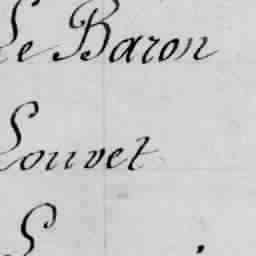 Le Baron
Louvet